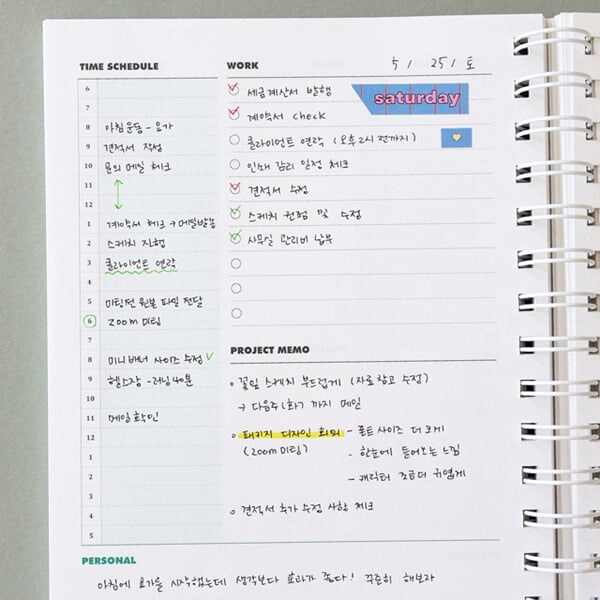 TIME SCHEDULE
6
7
8 아침운동 - 요가
9 견적서 작성
10 문의 메일 체크
11
12
1 계약서 체크 → 메일발송
2 스케치 진행
3 클라이언트 연락
4
5 미팅전 원본 파일 전달
6 zoom 미팅
7
8 미니배너 사이즈 수정 ✓
9 헬스장 - 러닝 40분
10
11 메일확인
12
1
2
3
4
5
WORK 5 / 25 / 토
saturday
세금계산서 발행
계약서 check
클라이언트 연락 (오후 2시 전까지)
인쇄 감리 일정 체크
견적서 수정
스케치 컨펌 및 수정
사무실 관리비 납부
PROJECT MEMO
꽃잎 스케치 부드럽게 (자료참고 수정)
→ 다음주(화) 까지 메일
패키지 디자인 회의 - 폰트 사이즈 더 크게
(zoom 미팅) - 한눈에 들어오는 느낌
- 캐릭터 조금더 귀엽게
견적서 추가 수정 사항 체크
PERSONAL
아침에 요가를 시작했는데 생각보다 효과가 좋다! 꾸준히 해보자